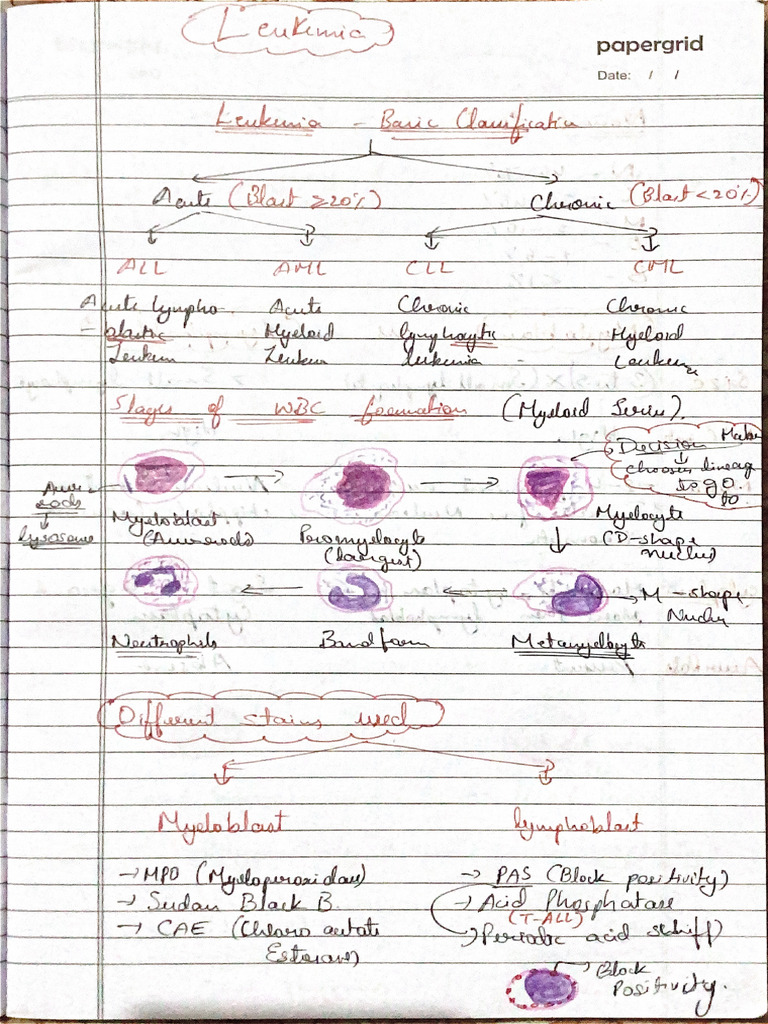 Leukemia
papergrid
Date: / /
Leukemia - Basic Classification
Acute (Blast ≥20%) Chronic (Blast <20%)
ALL AML CLL CML
Acute lympho Acute Chronic Chronic
- blastic Myeloid lymphocytic Myeloid
Leukem Leukem leukemia Leukem
Stages of WBC formation (Myeloid Series).
Decision Make
chooses lineage
to go.
to
Auer
rods
lysosome
Myeloblast
(Auer rods)
Promyelocyte
(largest)
Myelocyte
(D-shape
nucleus)
M-shape
Neutrophils Band form Metamyelocyte
Different stains used
Myeloblast lymphoblast
→ MPO (Myeloperoxidase) → PAS (Block positivity)
→ Sudan Black B. → Acid Phosphatase
(T-ALL)
→ CAE (Chloro acetate → Periodic acid schiff)
Esterase)
→ Block
Positivity.